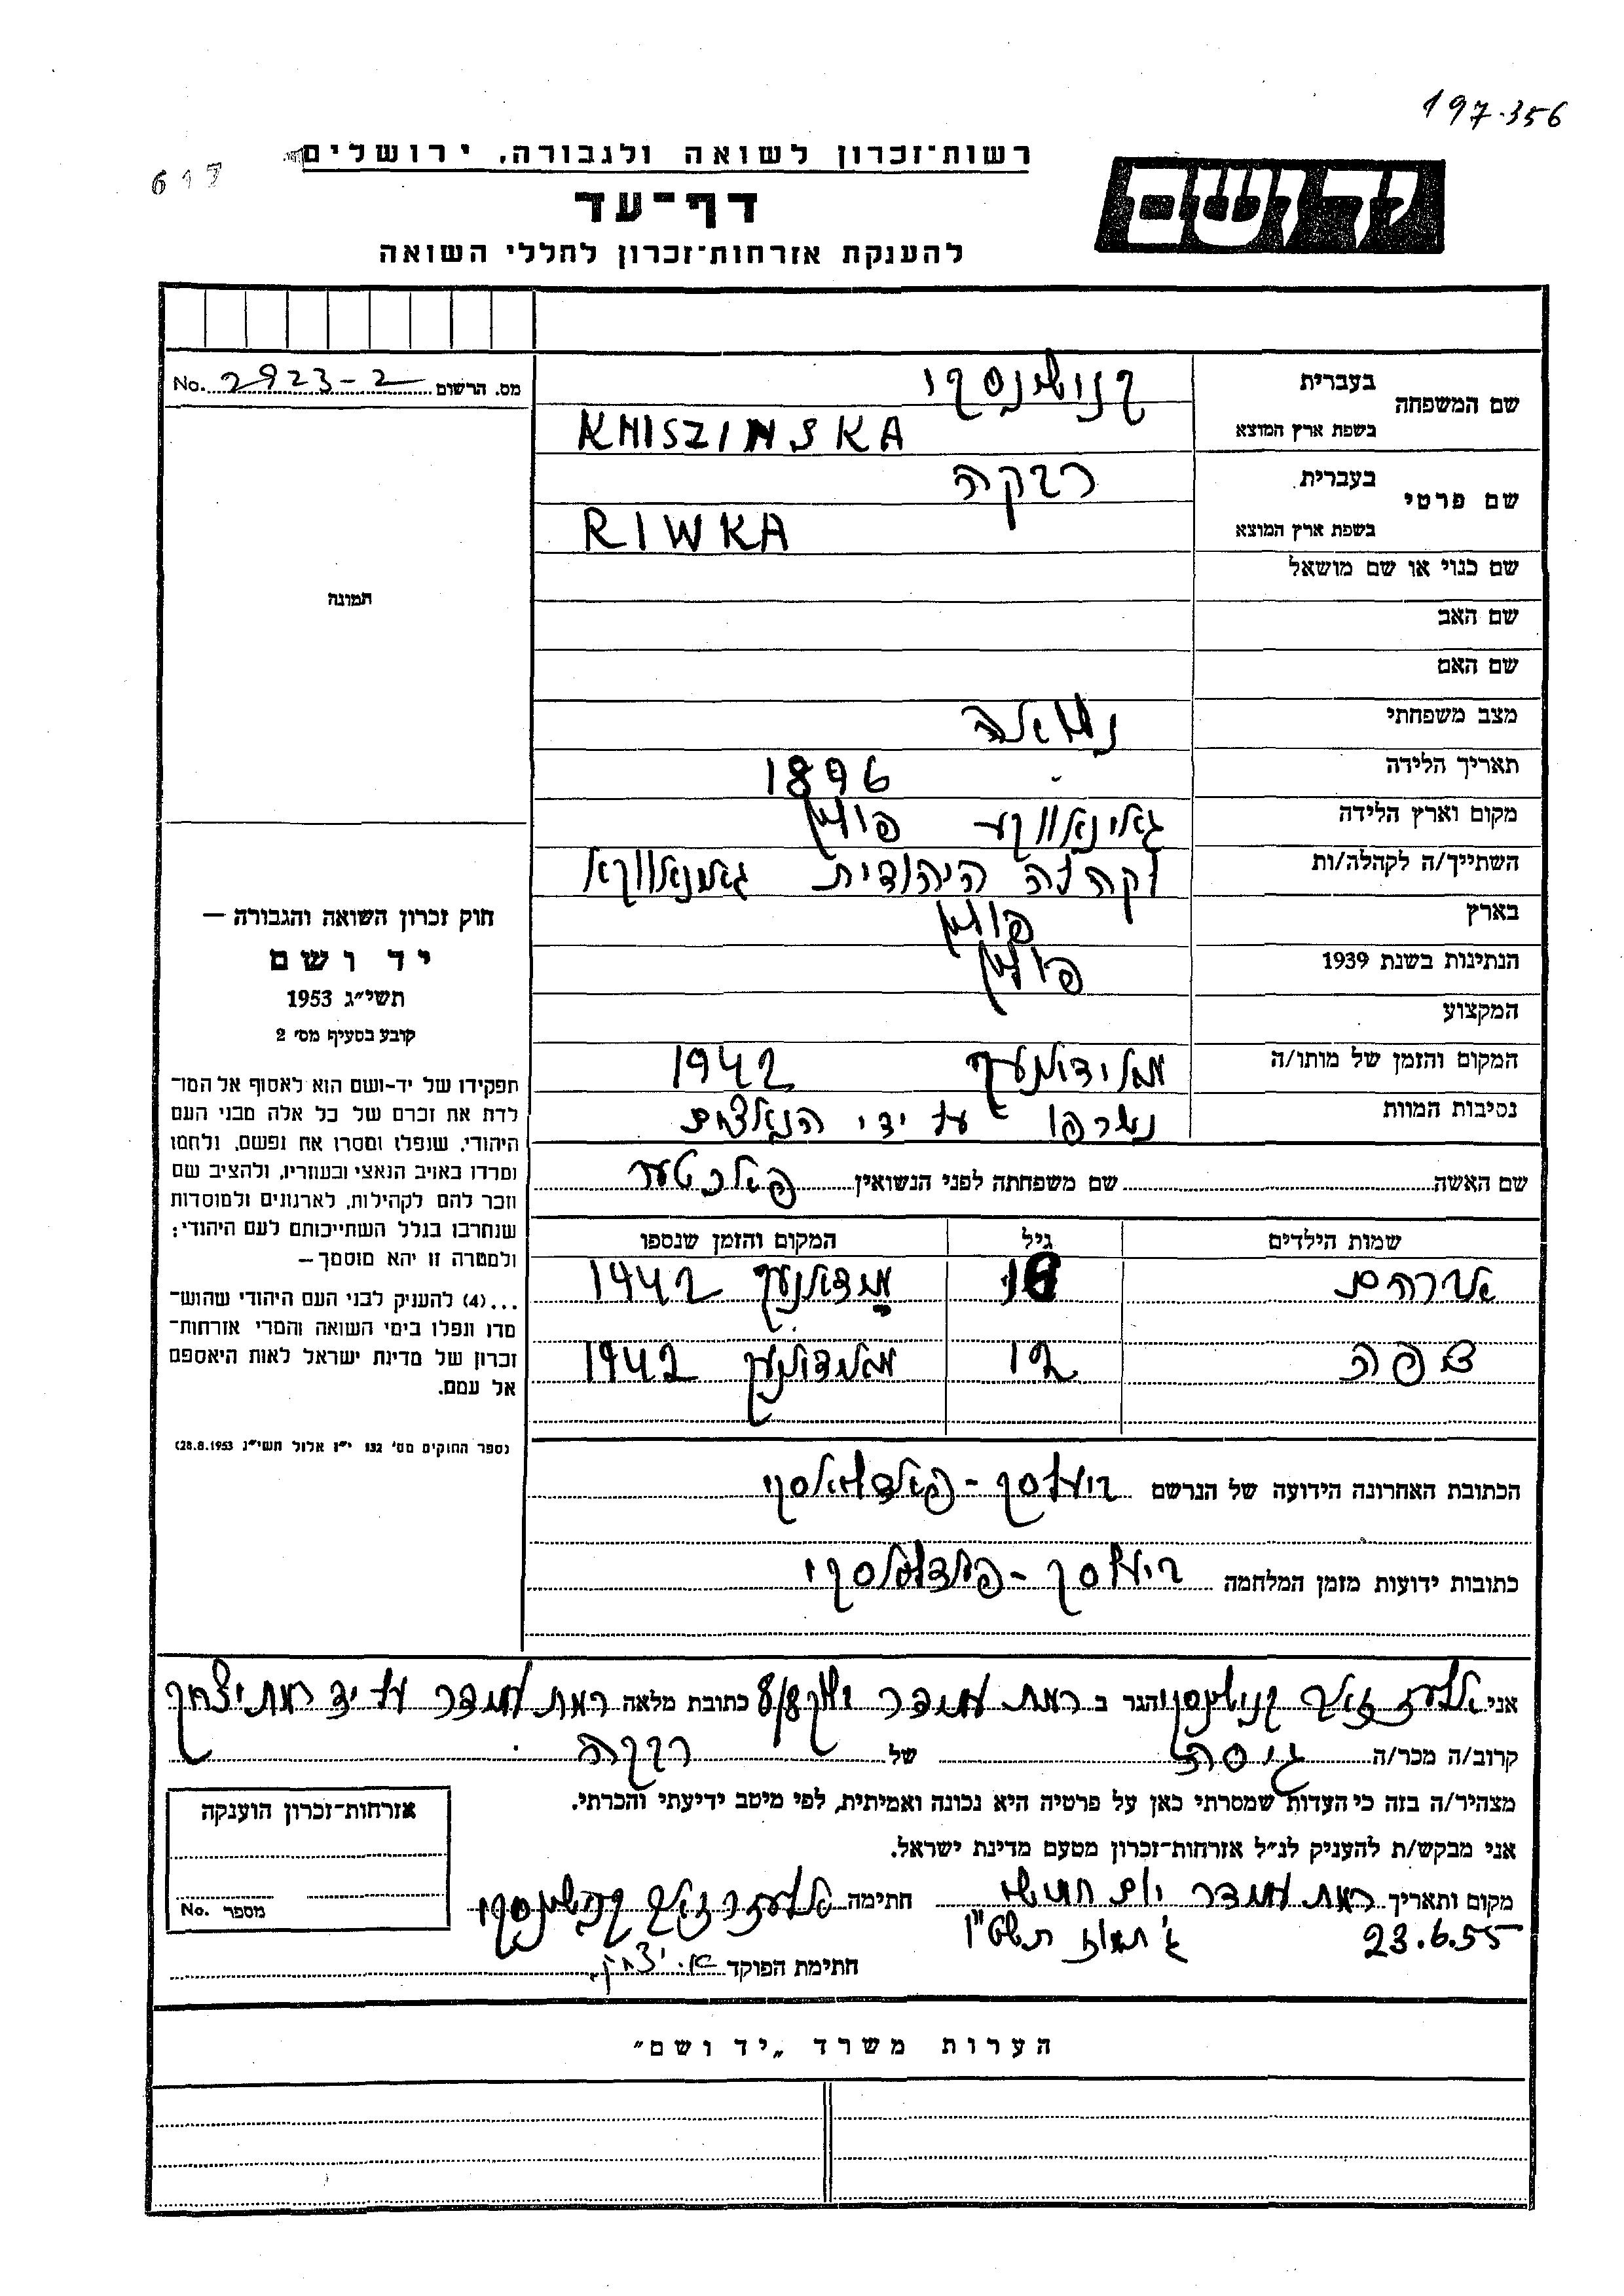 197.356
617
רשות־זכרון לשואה ולגבורה, ירושלים
יד ושם
דף־עד
להענקת אזרחות־זכרון לחללי השואה
מס. הרשום 2923-2 No.
שם המשפחה
בעברית קנושינסקי
בשפת ארץ המוצא KNISZINSKA
שם פרטי
בעברית רבקה
בשפת ארץ המוצא RIWKA
שם כנוי או שם מושאל
שם האב
שם האם
מצב משפחתי נשואה
תאריך הלידה 1896
מקום וארץ הלידה גאניאנווקע פולין
השתייך/ה לקהלה/ות הקהלה היהודית
בארץ פולין
הנתינות בשנת 1939 פולין
המקצוע
המקום והזמן של מותו/ה מאידאנעק 1942
נסיבות המוות נשרפו על ידי הנאצים
שם האשה שם משפחתה לפני הנשואין
שמות הילדים גיל המקום והזמן שנספו
אברהם 18 מידאנעק 1942
צפה 12 מאידאנעק 1942
הכתובת האחרונה הידועה של הנרשם ביעלסק-פאדלאסקי
כתובות ידועות מזמן המלחמה ביעלסק-פאדלאסקי
תמונה
חוק זכרון השואה והגבורה —
יד ושם
תשי״ג 1953
קובע בסעיף מס׳ 2
תפקידו של יד-ושם הוא לאסוף אל המו־
לדת את זכרם של כל אלה מבני העם
היהודי, שנפלו ומסרו את נפשם, נלחמו
ומרדו באויב הנאצי ובעוזריו, ולהציב שם
וזכר להם לקהילות, לארגונים ולמוסדות
שנחרבו בגלל השתייכותם לעם היהודי;
ולמטרה זו יהא מוסמך—
...(4) להעניק לבני העם היהודי שהוש־
מדו ונפלו בימי השואה והמרי אזרחות־
זכרון של מדינת ישראל לאות היאספם
אל עמם.
(ספר החוקים מס׳ 132 י״ז אלול תשי״ג 28.8.1953)
אני אלעזר זאב קנושינסקי הגר ב רמת עמידר שיכון 8/8 כתובת מלאה רמת עמידר על יד רמת יצחק
קרוב/ה מכר/ה גיסה של רבקה
מצהיר/ה בזה כי העדות שמסרתי כאן על פרטיה היא נכונה ואמיתית, לפי מיטב ידיעתי והכרתי.
אני מבקש/ת להעניק לנ״ל אזרחות־זכרון מטעם מדינת ישראל.
מקום ותאריך רמת עמידר יום חמישי חתימה אלעזר זאב קנושינסקי
23.6.55 ג׳ תמוז תשט"ו
חתימת הפוקד א. יצחק
אזרחות־זכרון הוענקה
מספר No.
הערות משרד „יד ושם״